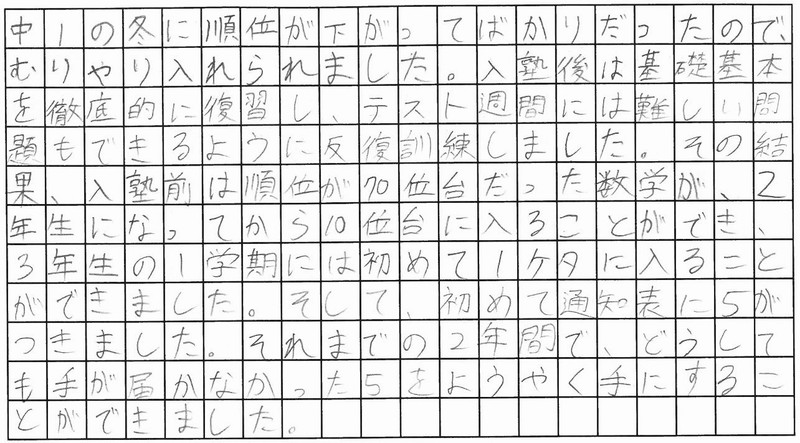 中1の冬に順位が下がってばかりだったので、
むりやり入れられました。入塾後は基礎基本
を徹底的に復習し、テスト週間には難しい問
題もできるように反復訓練しました。その結
果、入塾前は順位が70位台だった数学が、2
年生になってから10位台に入ることができ、
3年生の1学期には初めて1ケタに入ること
ができました。そして、初めて通知表に5が
つきました。それまでの2年間で、どうして
も手が届かなかった5をようやく手にするこ
とができました。